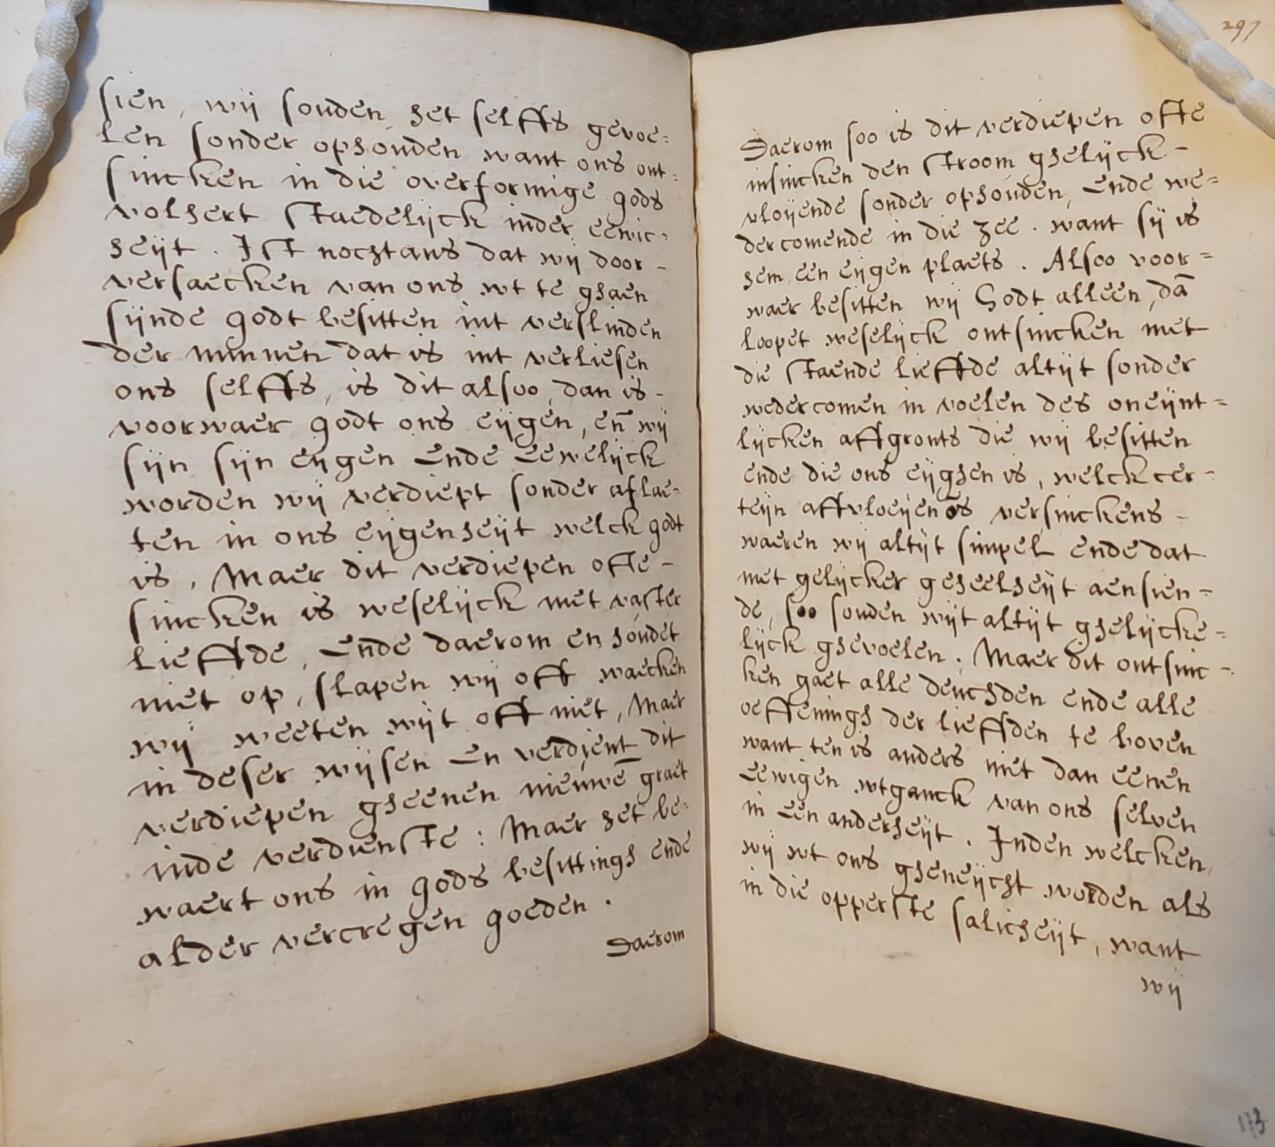 sien, wij souden het selffs gevoe=
len sonder ophouden want ons ont=
sincken in die overformige gods
volhert staedelijck inder eewic-
heijt. Ist nochtans dat wij door-
versaecken van ons wt te ghaen
sijnde godt besitten int verslinden
der minnen dat is int verliesen
ons selffs, is dit alsoo, dan is-
voorwaer godt ons eijgen, eñ wij
sijn sijn eijgen ende eewelijck
worden wij verdiept sonder aflae-
ten in ons eijgenheijt welck godt
is, Maer dit verdiepen ofte-
sincken is weselijck met vaster
lieffde, Ende daerom en houdet
niet op, slapen wij off waecken
wij weeten wijt off niet, Maer
in deser wijsen en verdient dit
verdiepen gheenen nieuwē graet
inde verdienste: Maer het be-
waert ons in gods besittingh ende
alder vercregen goeden.
Daerom
297
Daerom soo is dit verdiepen ofte
insincken den stroom ghelijck-
vloijende sonder ophouden, Ende we=
dercomende in die zee. want sij is
hem een eijgen plaets. Alsoo voor=
waer besitten wij Godt alleen, dā
loopet weselijck ontsincken met
die staende lieffde altijt sonder
wedercomen in voelen des oneijnt=
lijcken affgronts die wij besitten
ende die ons eijghen is, welck cer-
teijn affvloeijen versinckens-
waeren wij altijt simpel ende dat
met gelijcker geheelheijt aensien-
de, soo souden wijt altijt ghelijcke-
lijck ghevoelen. Maer dit ontsinc-
ken gaet alle deuchden ende alle
oeffenings der lieffden te boven
want ten is anders niet dan eenen
Eewigen wtganck van ons selven
in een anderheijt. Inden welcken,
wij wt ons gheneijcht worden als
in die opperste salicheijt, want
wij
173